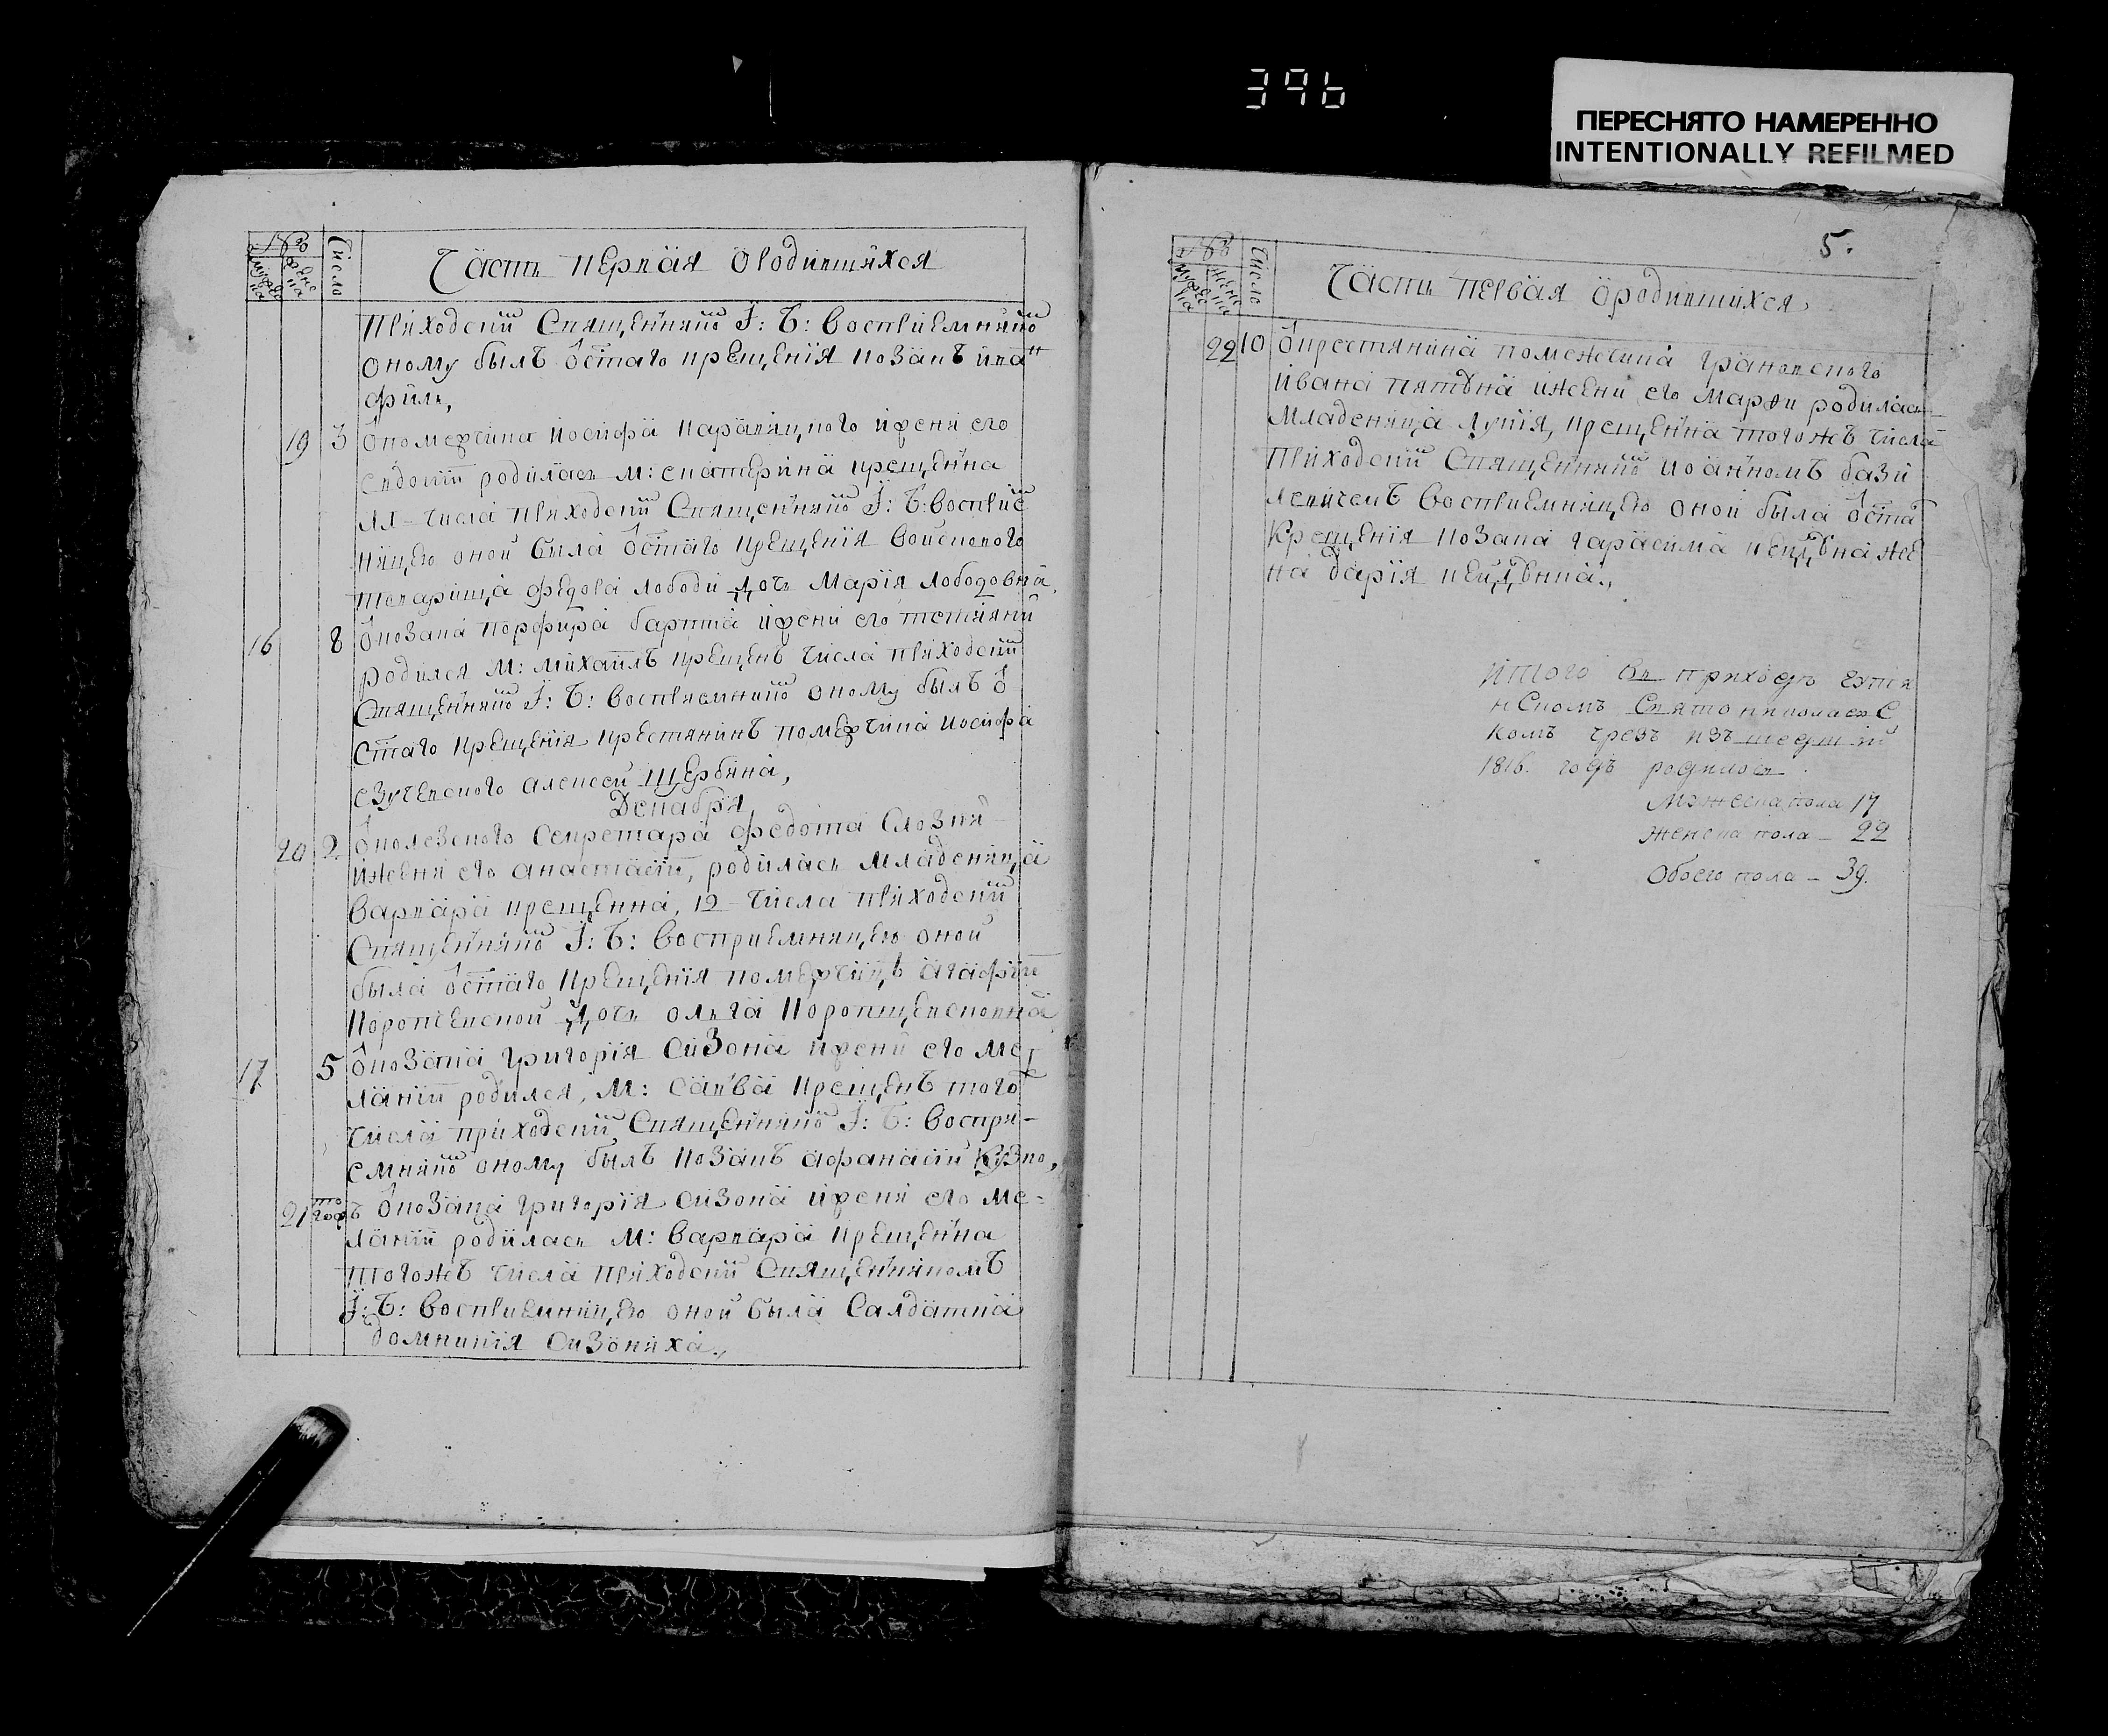 396
ПЕРЕСНЯТО НАМЕРЕННО
INTENTIONALLY REFILMED
Число
Часть первая о родившихся
приходским Священником І: Б: восприемником
оному былъ от стаго крещения козакъ
19 3 У помещика иосифа его
родилась М: екатерина крещенна
числа приходским Священником І: Б: восприе
ницею оной была от стаго крещения войскового
товарища федора лободи дочь Мария лободовна,
16 8 У козака порфира и жени его
родился М: михаилъ крещенъ числа приходским
Священником І: Б: восприемником оному былъ о
стаго крещения крестянинъ помещика иосифа
алексей Щербина,
Декабря
20 2 У Секретара федота
и жени его анастасии, родилась младеница
варвара крещенна, 12 числа приходским
Священником І: Б: восприемницею оной
была от стаго крещения
дочь олга
17 5 У козака григория Сизона и жени его ме
лании родился, М: Савва крещенъ того
числа приходским Священником І: Б: воспри-
емником оному былъ козакъ афанасий
21 тогожъ У козака григория Сизона и жени его ме-
лании родилась М: варвара крещенна
тогожъ числа приходским Священникомъ
І: Б: восприемницею оной была Салдатка
домникия Сизониха.,
5.
Число
Часть первая о родившихся
22 10 У крестянина помещика
ивана и жени его Марфи родилась
младеница лукия, крещенна тогожъ числа
приходским Священником иоанномъ бази
левичемъ восприемницею оной была от ста
крещения козака гарасима же
на дария
Итого въ приходе
нскомъ Святониколаевс
комъ чрезъ изшедший
1816. годъ родилось
Мужеска пола 17
Женска пола – 22
Обоего пола – 39.